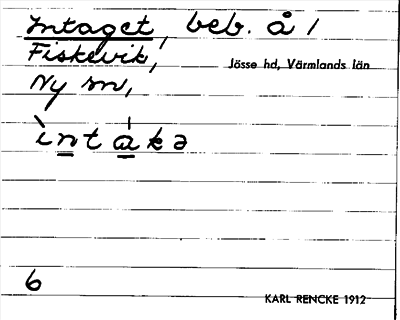 Intaget, beb. å /
Fiskevik,
Jösse hd, Värmlands län
Ny sn,
ìntáka
6
KARL RENCKE 1912